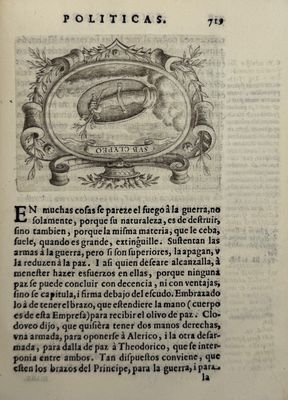 POLITICAS. 729
SVB CLYPEO
EN muchas cosas se pareze el fuego â la guerra, no
solamente, porque su naturaleza, es de destruir,
sino tambien, porque la misma materia, que le ceba,
suele, quando es grande, extinguille. Sustentan las
armas â la guerra, pero si son superiores, la apagan, v
la reduzen à la paz. I asi quien deseare alcanzalla, à
menester hazer esfuerzos en ellas, porque ninguna
paz se puede concluir con decencia, ni con ventajas,
sino se capitula, i firma debajo del escudo. Embrazado
lo à de tener el brazo, que estendiere la mano (cuerpo
es de esta Empresa) para recibir el olivo de paz. Clo-
doveo dijo, que quisiera tener dos manos derechas,
vna armada, para oponerse à Alerico, i la otra desar-
mada, para dalla de paz à Theodorico, que se inter-
ponia entre ambos. Tan dispuestos conviene, que
esten los brazos del Principe, para la guerra, i para
la